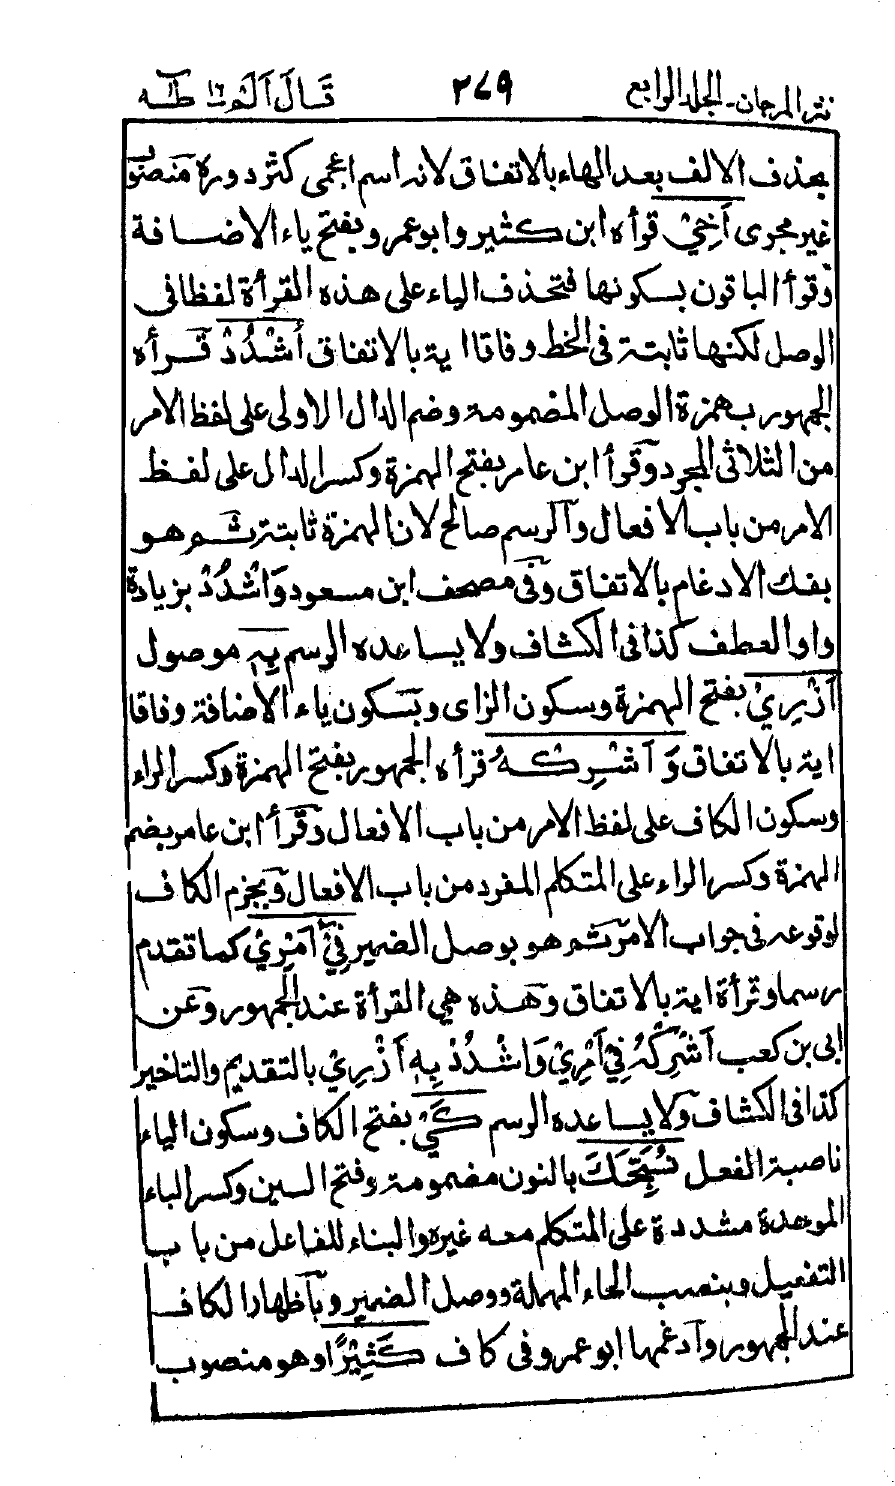 نثر المرجان-الجلد الرابع ٢٧٩ قَالَ اَلَمْ ١٦ طٰهٰ
بحذف الالف بعد الهاء بالاتفاق لانه اسم اعجمى كثر دوره منصوب
غير مجرى اَخِيْ قرأه ابن كثير وابو عمرو بفتح ياء الاضافة
وقرأ الباقون بسكونها فتحذف الياء على هذه القرأة لفظا فى
الوصل لكنها ثابتة فى الخط وفاقا اية بالاتفاق اُشْدُدْ قرأه
الجمهور بهمزة الوصل المضمومة وضم الدال الاولى على لفظ الامر
من الثلاثى المجرد وقرأ ابن عامر بفتح الهمزة وكسر الدال على لفظ
الامر من باب الافعال والرسم صالح لان الهمزة ثابتة ثم هو
بفك الادغام بالاتفاق وفى مصحف ابن مسعود وَاشْدُدْ بزيادة
واو العطف كذا فى الكشاف ولا يساعده الرسم بِهٖ موصول
اَزْرِيْ بفتح الهمزة وسكون الزاى وبسكون ياء الاضافة وفاقا
اية بالاتفاق وَاَشْرِكْهُ قرأه الجمهور بفتح الهمزة وكسر الراء
وسكون الكاف على لفظ الامر من باب الافعال وقرأ ابن عامر بضم
الهمزة وكسر الراء على المتكلم المفرد من باب الافعال وبجزم الكاف
لوقوعه فى جواب الامر ثم هو بوصل الضمير فِيْ اَمْرِيْ كما تقدم
رسما وقرأة اية بالاتفاق وهذه هى القرأة عند الجمهور وعن
ابى بن كعب اَشْرِكْهُ فِيْ اَمْرِيْ وَاشْدُدْ بِهٖ اَزْرِيْ بالتقديم والتاخير
كذا فى الكشاف ولا يساعده الرسم كَيْ بفتح الكاف وسكون الياء
ناصبة الفعل نُسَبِّحَكَ بالنون مضمومة وفتح السين وكسر الباء
الموحدة مشددة على المتكلم معه غيره والبناء للفاعل من باب
التفعيل وبنصب الحاء المهملة ووصل الضمير وباظهار الكاف
عند الجمهور وادغمها ابو عمرو فى كاف كَثِيْرًا وهو منصوب